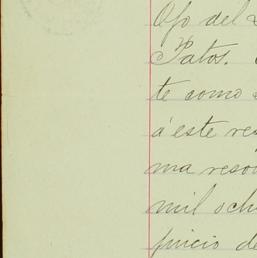 Ofo del
Patos.
te como
á este res
ma reso
mil och
juicio de